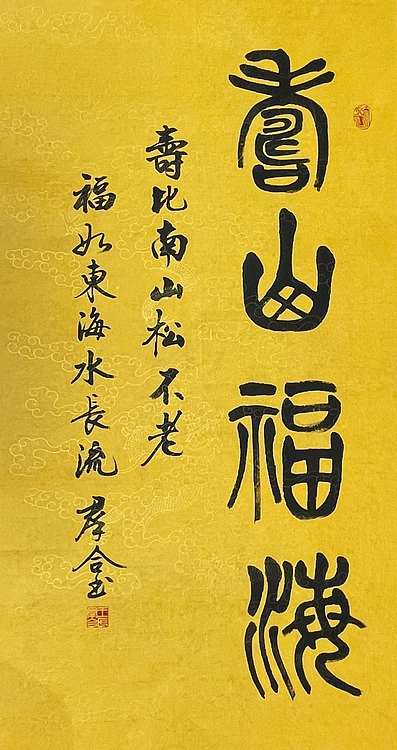 壽山福海
壽比南山松不老
福如東海水長流 羣合